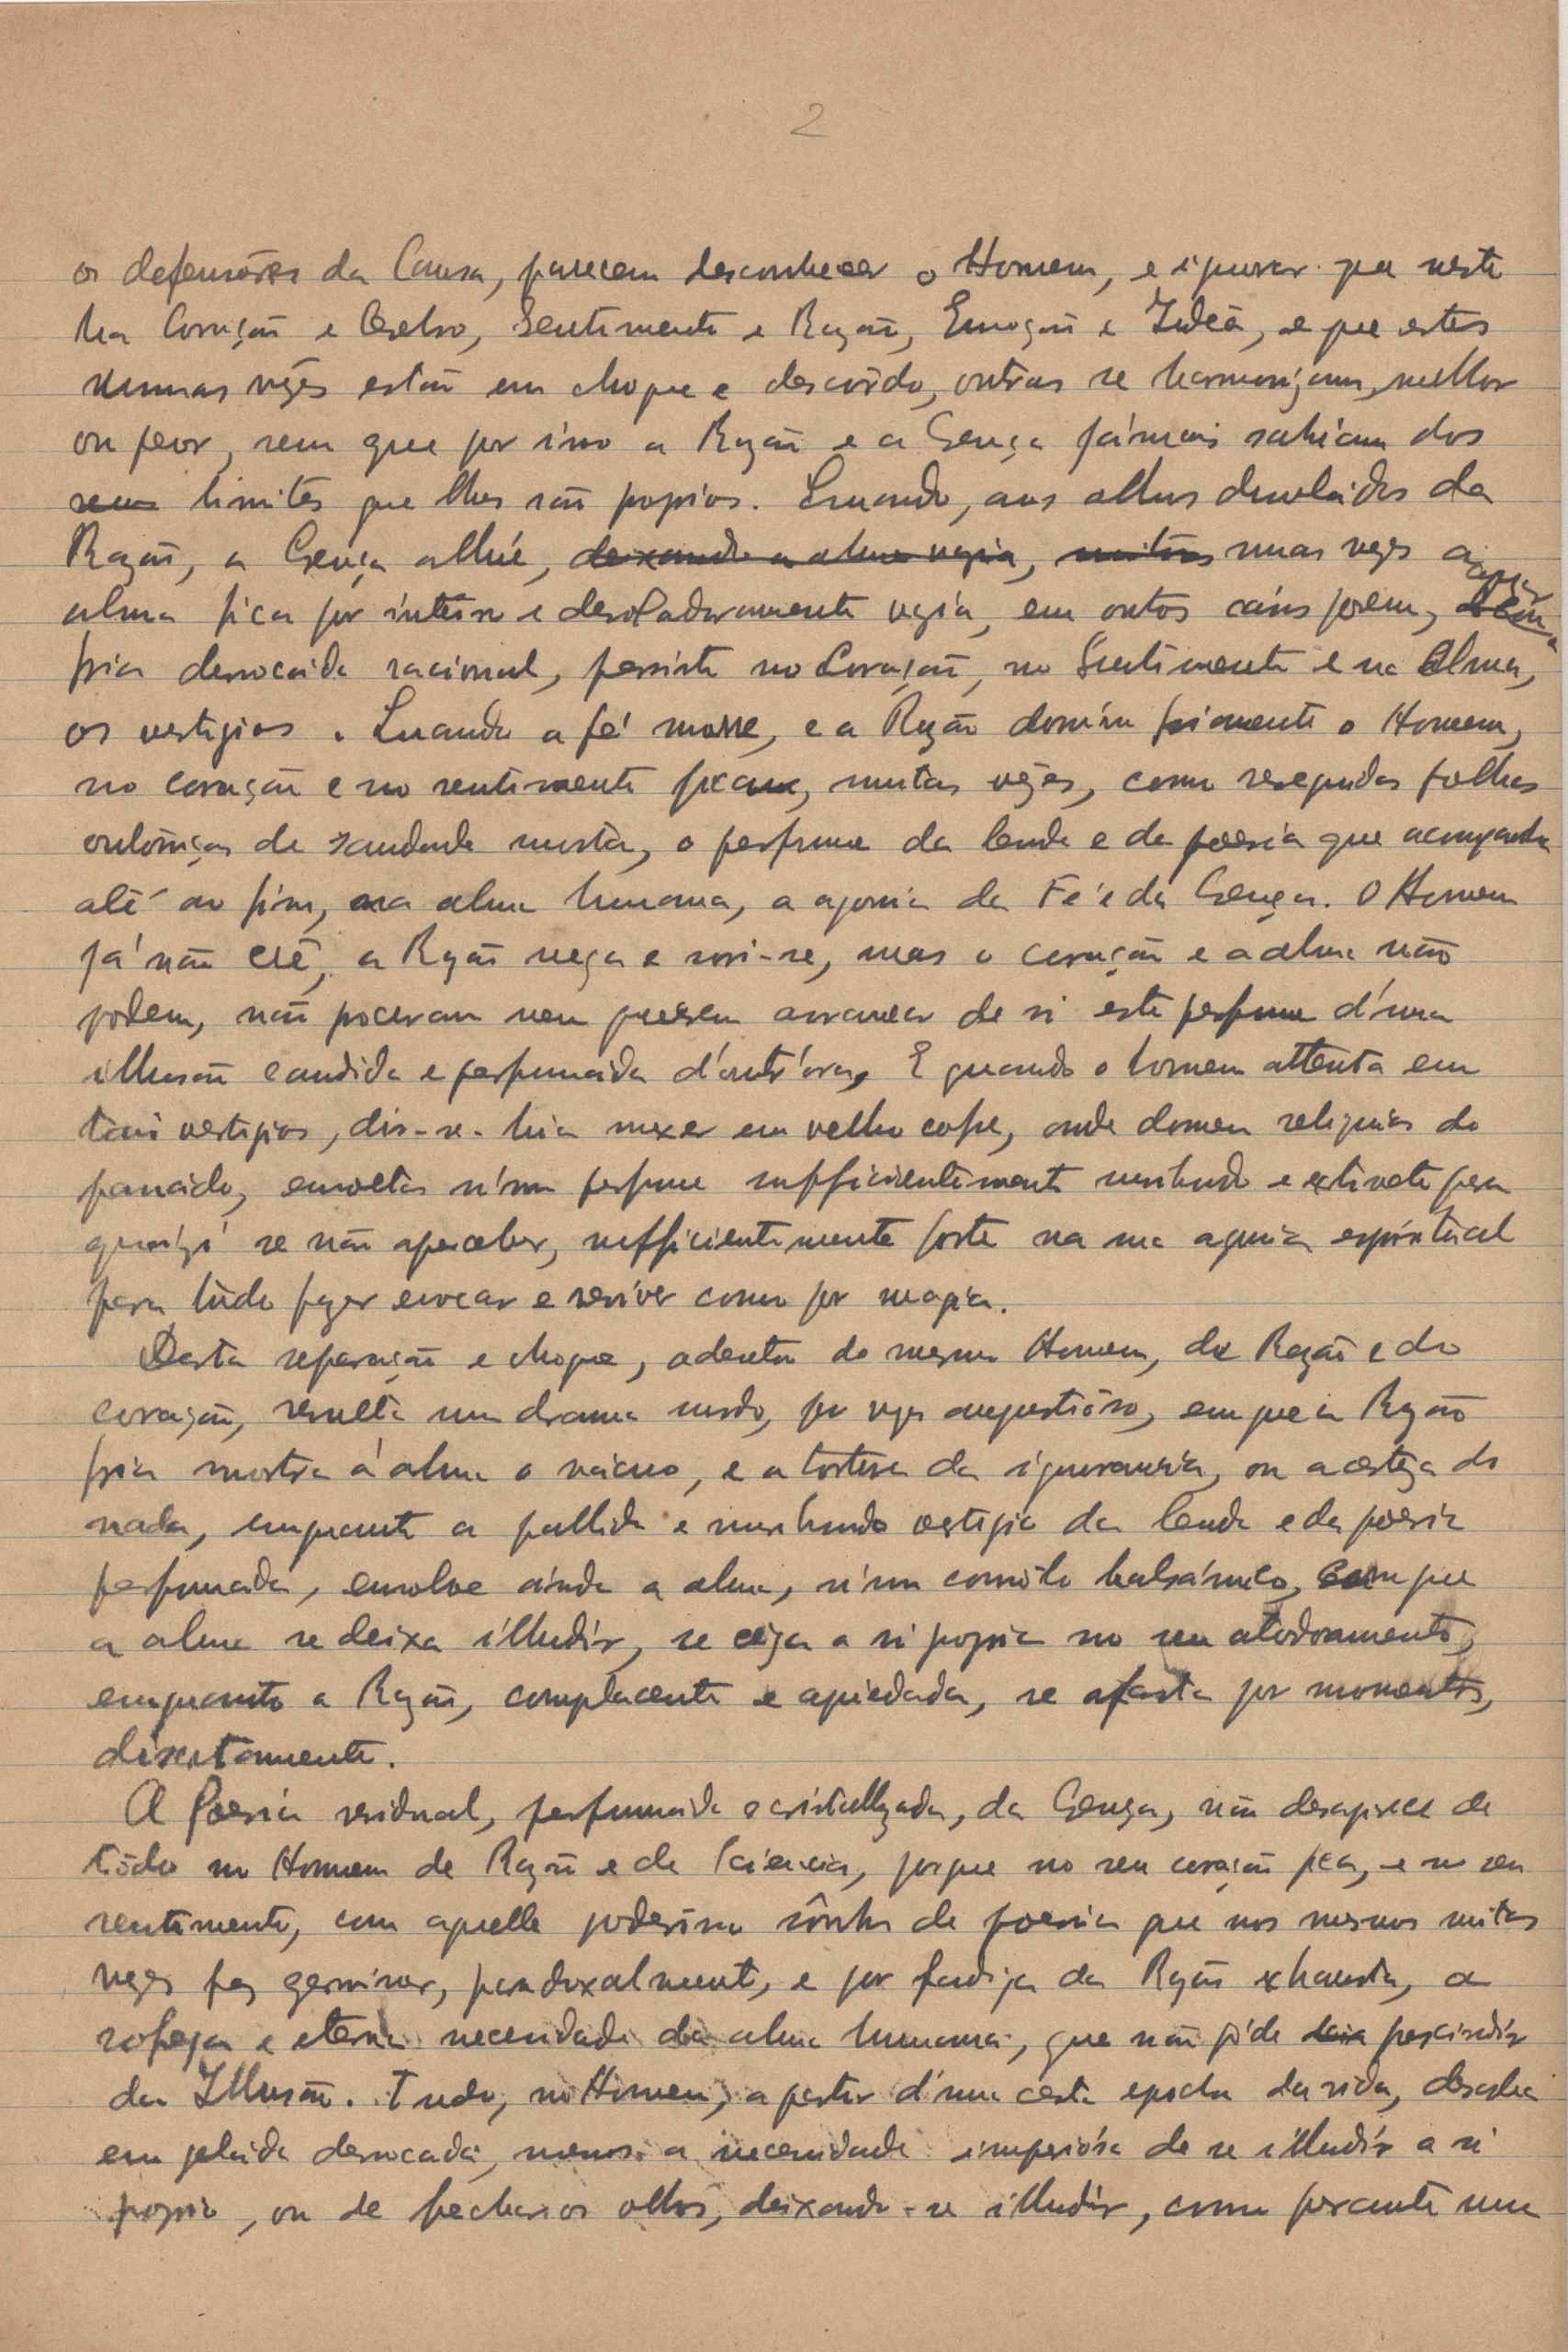 2
os defensores da Causa, parecem desconhecer o Homem, e ignorar que neste
ha Coração e Cerebro, Sentimento e Razão, Emoção e Idéa, e que estes
numas vezes estão em choque e desacôrdo, outras se harmonizam, melhor
ou peor, sem que por isso a Razão e a Crença jámais sahiam dos
seus limites que lhes são proprios. Quando, aos olhos desolados da
Razão, a Crença alhúe, deixando a alma vazia, muitas numas vezes a
alma fica por inteiro e desoladoramente vazia, em outros cásos porem,
fria derrocada racional, persiste no Coração, no Sentimento e na Alma,
os vestigios. Quando a fé morre, e a Razão domína friamente o Homem,
no coração e no sentimento ficam, muitas vezes, como resequidas folhas
outoniças de saudade morta, o perfume da lenda e da poesia que acompanha
até ao fim, na alma humana, a agonia da Fé e da Crença. O Homem
já não crê, a Razão nega e sorri-se, mas o coração e a alma não
podem, não procuram nem querem arrancar de si este perfume d'uma
illusão candida e perfumada d'outr'ora. E quando o homem attenta em
taes vestigios, dir-se-hia mexer em velho cofre, onde dormem reliquias do
passado, envoltas n'um perfume sufficientemente moribundo e extincto para
quasi se não aperceber, sufficientemente forte na sua agonia espiritual
para tudo fazer evocar e reviver como por magia.
Desta separação e choque, adentro do mesmo Homem, da Razão e do
coração, resulta um drama surdo, por vezes angustiôso, em que a Razão
fria mostra á alma o vácuo, e a tortura da ignorancia, ou a certeza do
nada, emquanto o pallido e moribundo vestigio da lenda e da poesia
perfumada, envolve ainda a alma, n'um consôlo balsámico, com que
a alma se deixa illudir, se cega a si propria no seu atordoamento,
emquanto a Razão, complacente e apiedada, se afasta por momentos,
discretamente.
A Poesia residual, perfumada e cristallizada, da Crença, não desaparece de
tôdo no Homem de Razão e de Sciencia, porque no seu coração fica, e no seu
sentimento, com aquelle poderoso sônho de poesia que nos mesmos muitas
vezes faz germinar, paradoxalmente, e por fadiga da Razão exhausta, a
sofrega e eterna necessidade da alma humana, que não póde prescindir
da Illusão. Tudo, no Homem, a partir d'uma certa epocha da vida, desaba
em gelada derrocada, menos a necessidade imperiósa de se illudir a si
proprio, ou de fechar os olhos, deixando-se illudir, como perante um